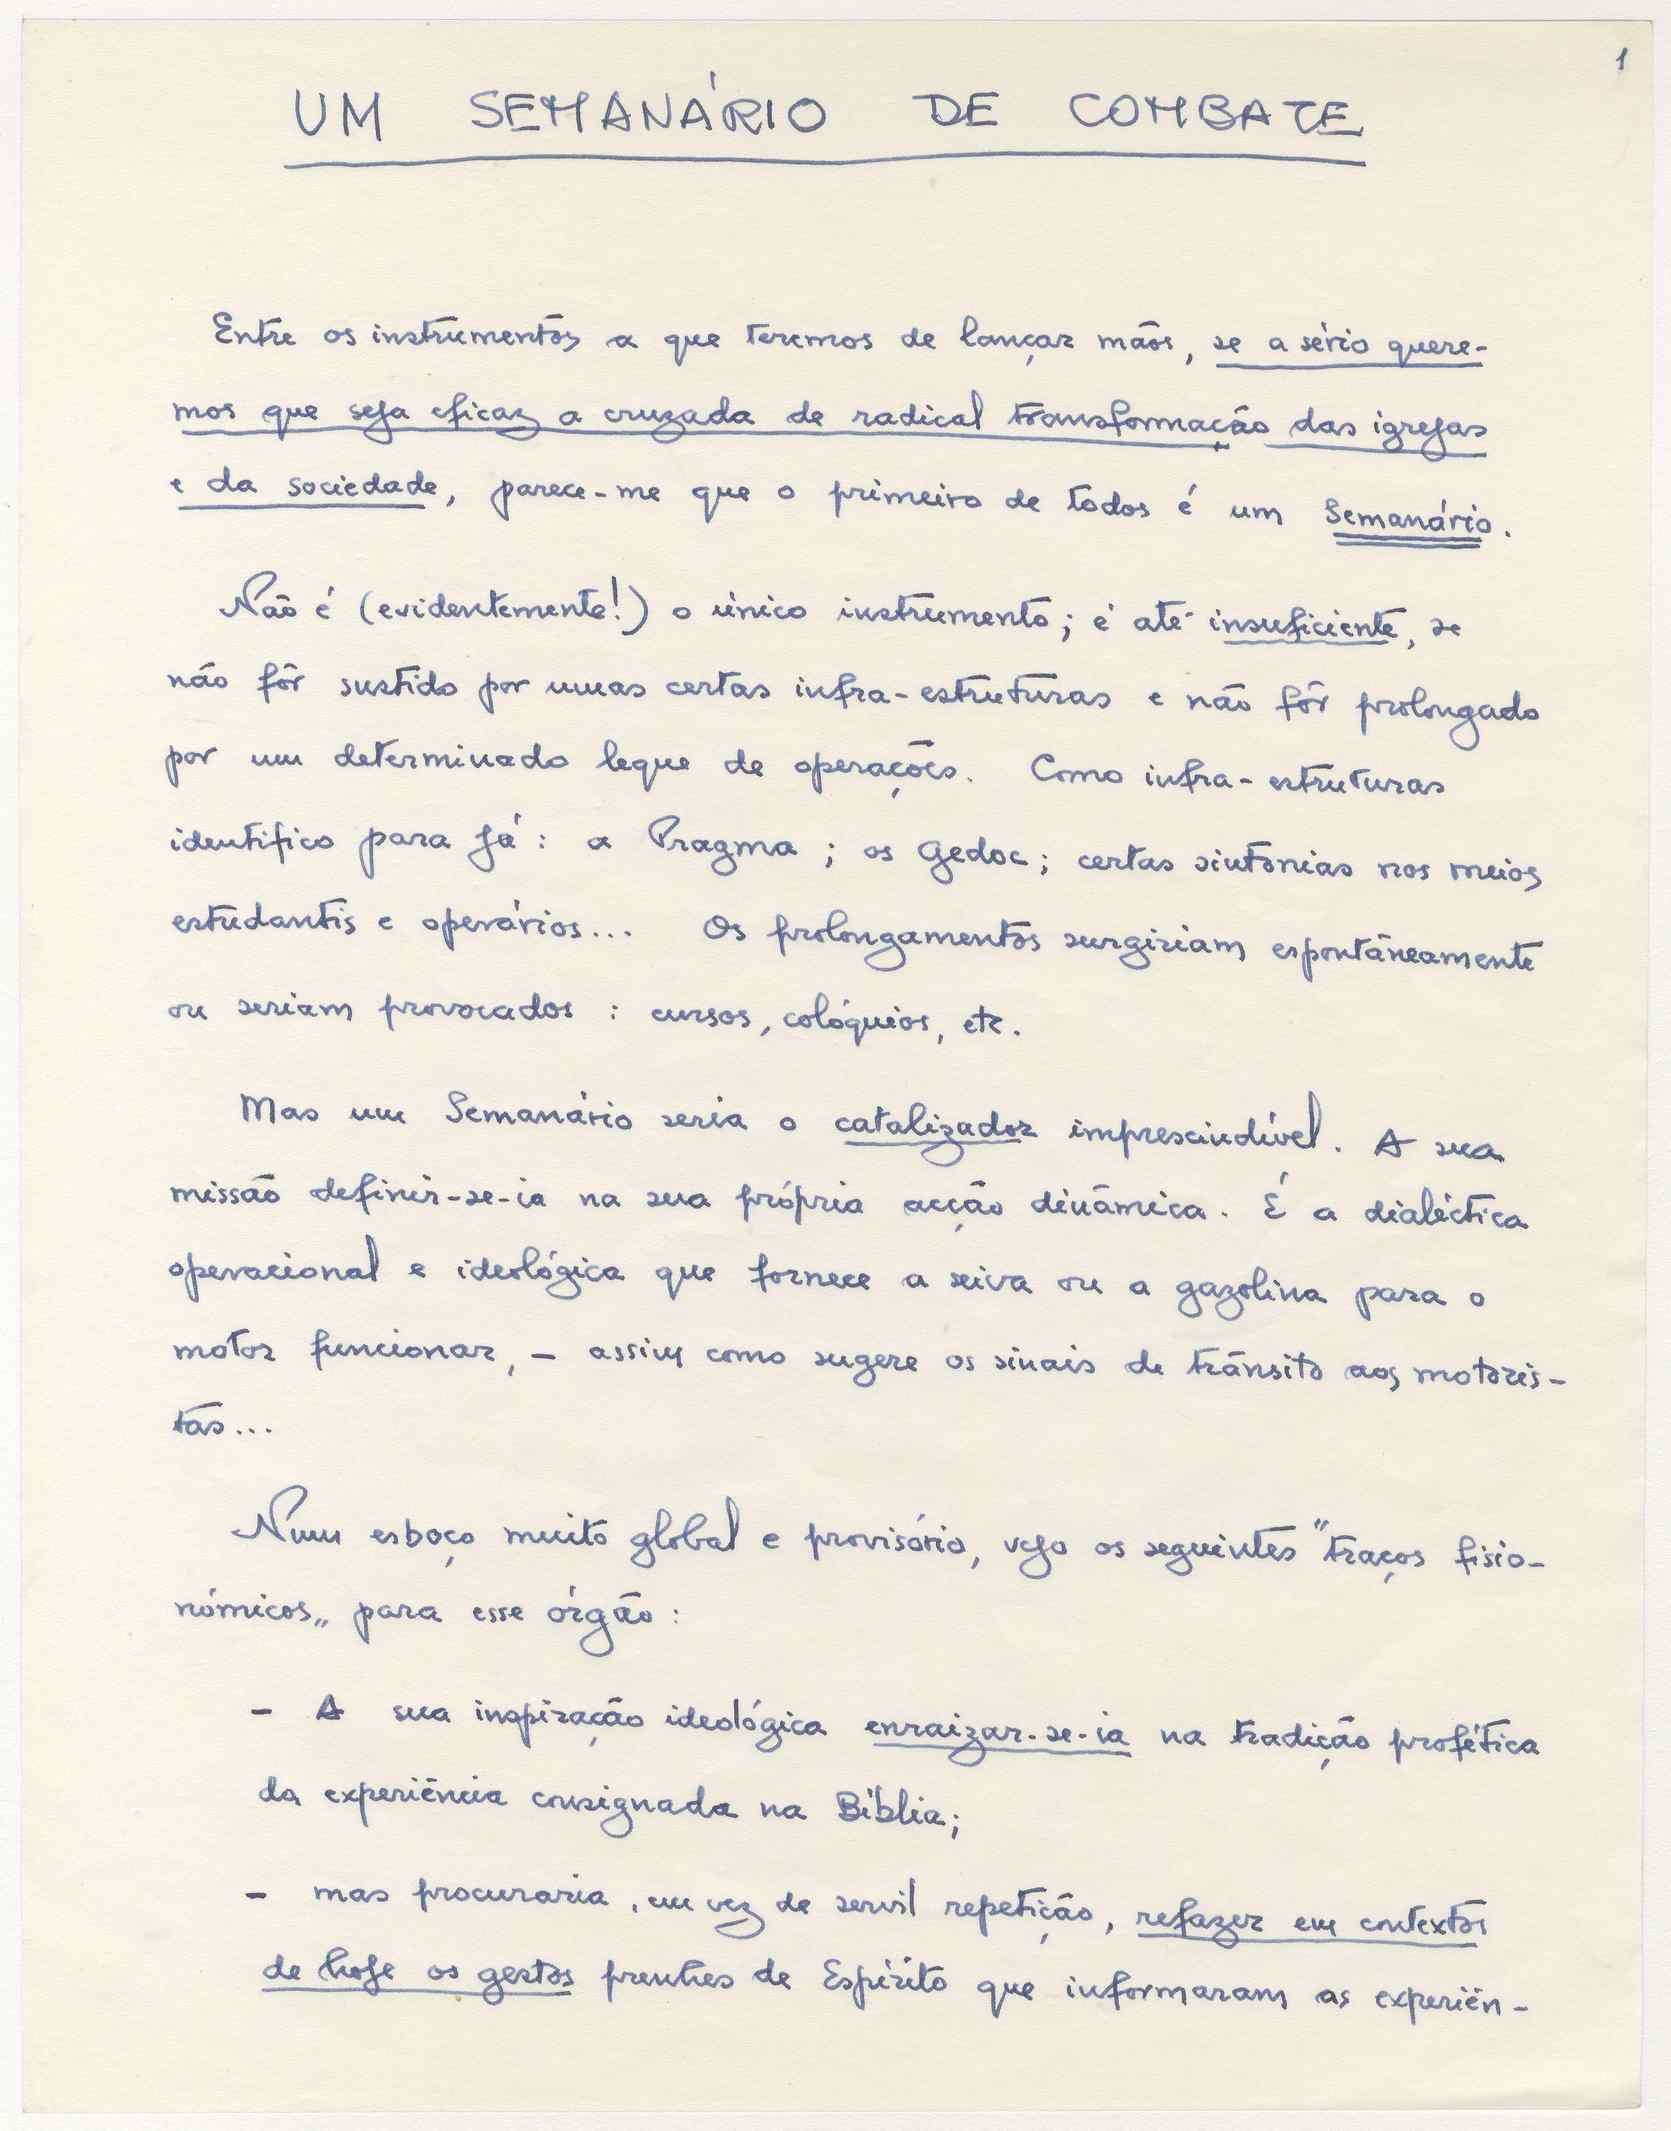 1
UM SEMANÁRIO DE COMBATE
Entre os instrumentos a que teremos de lançar mãos, se a sério quere-
mos que seja eficaz a cruzada de radical transformação das igrejas
e da sociedade, parece-me que o primeiro de todos é um Semanário.
Não é (evidentemente!) o único instrumento; é até insuficiente, se
não fôr sustido por umas certas infra-estruturas e não fôr prolongado
por um determinado leque de operações. Como infra-estruturas
identifico para já: a Pragma; os Gedoc; certas sintonias nos meios
estudantis e operários... Os prolongamentos surgiriam espontâneamente
ou seriam provocados: cursos, colóquios, etc.
Mas um Semanário seria o catalizador imprescindível. A sua
missão definir-se-ia na sua própria acção dinâmica. É a dialéctica
operacional e ideológica que fornece a seiva ou a gazolina para o
motor funcionar, – assim como sugere os sinais de trânsito aos motoris-
tas...
Num esboço muito global e provisório, vejo os seguintes "traços fisio-
nómicos„ para esse órgão:
– A sua inspiração ideológica enraizar-se-ia na tradição profética
da experiência consignada na Bíblia;
– mas procuraria, em vez de servil repetição, refazer em contextos
de hoje os gestos prenhes de Espírito que informaram as experiên-